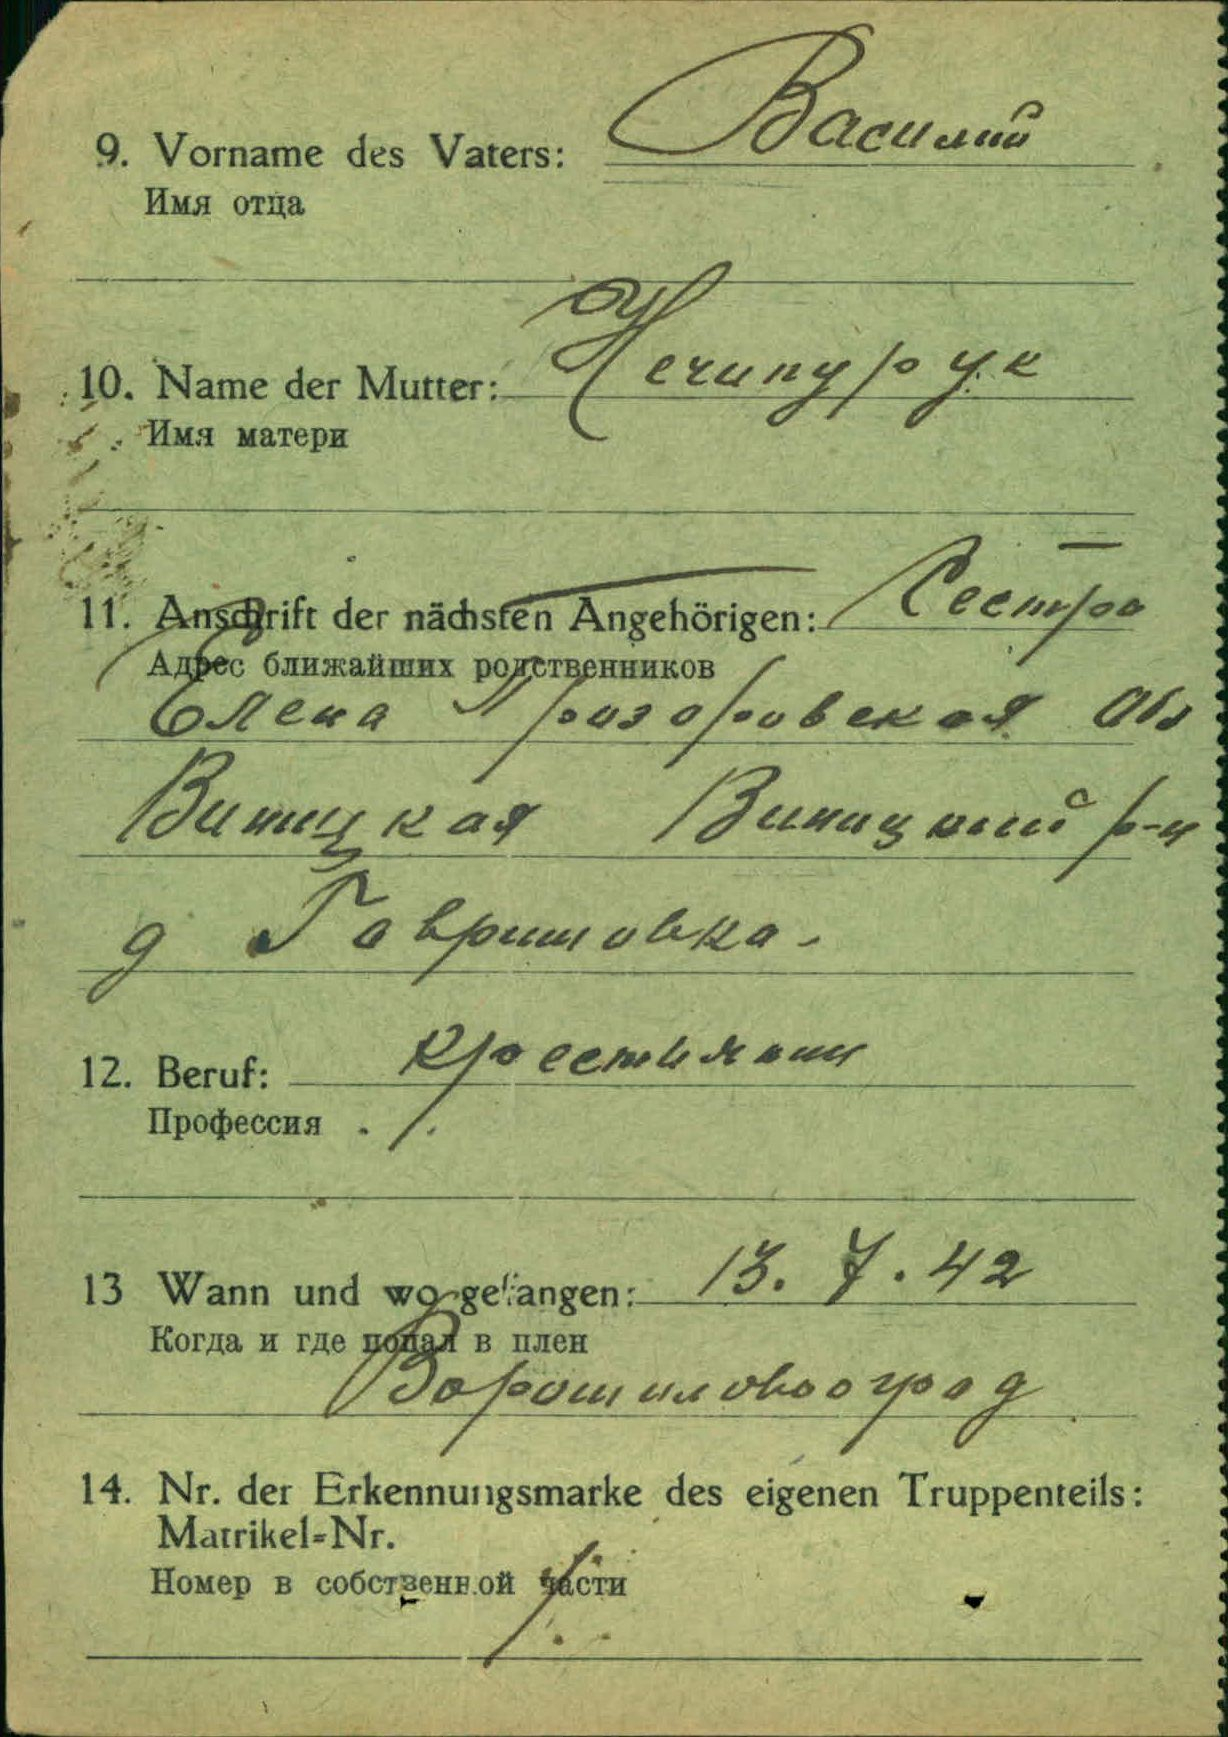 9. Vorname des Vaters: Василий
Имя отца
10. Name der Mutter: Нечипурук
Имя матери
11. Anschrift der nächsten Angehörigen: Сестра
Адрес ближайших родственников
Елена Прозоровская Обл
Виницкая Виницкий р-н
д Гавришовка.
12. Beruf: крестянин
Профессия
13 Wann und wo gefangen: 13. 7. 42
Когда и где попал в плен
Ворошиловоград
14. Nr. der Erkennungsmarke des eigenen Truppenteils:
Matrikel=Nr.
Номер в собственной части